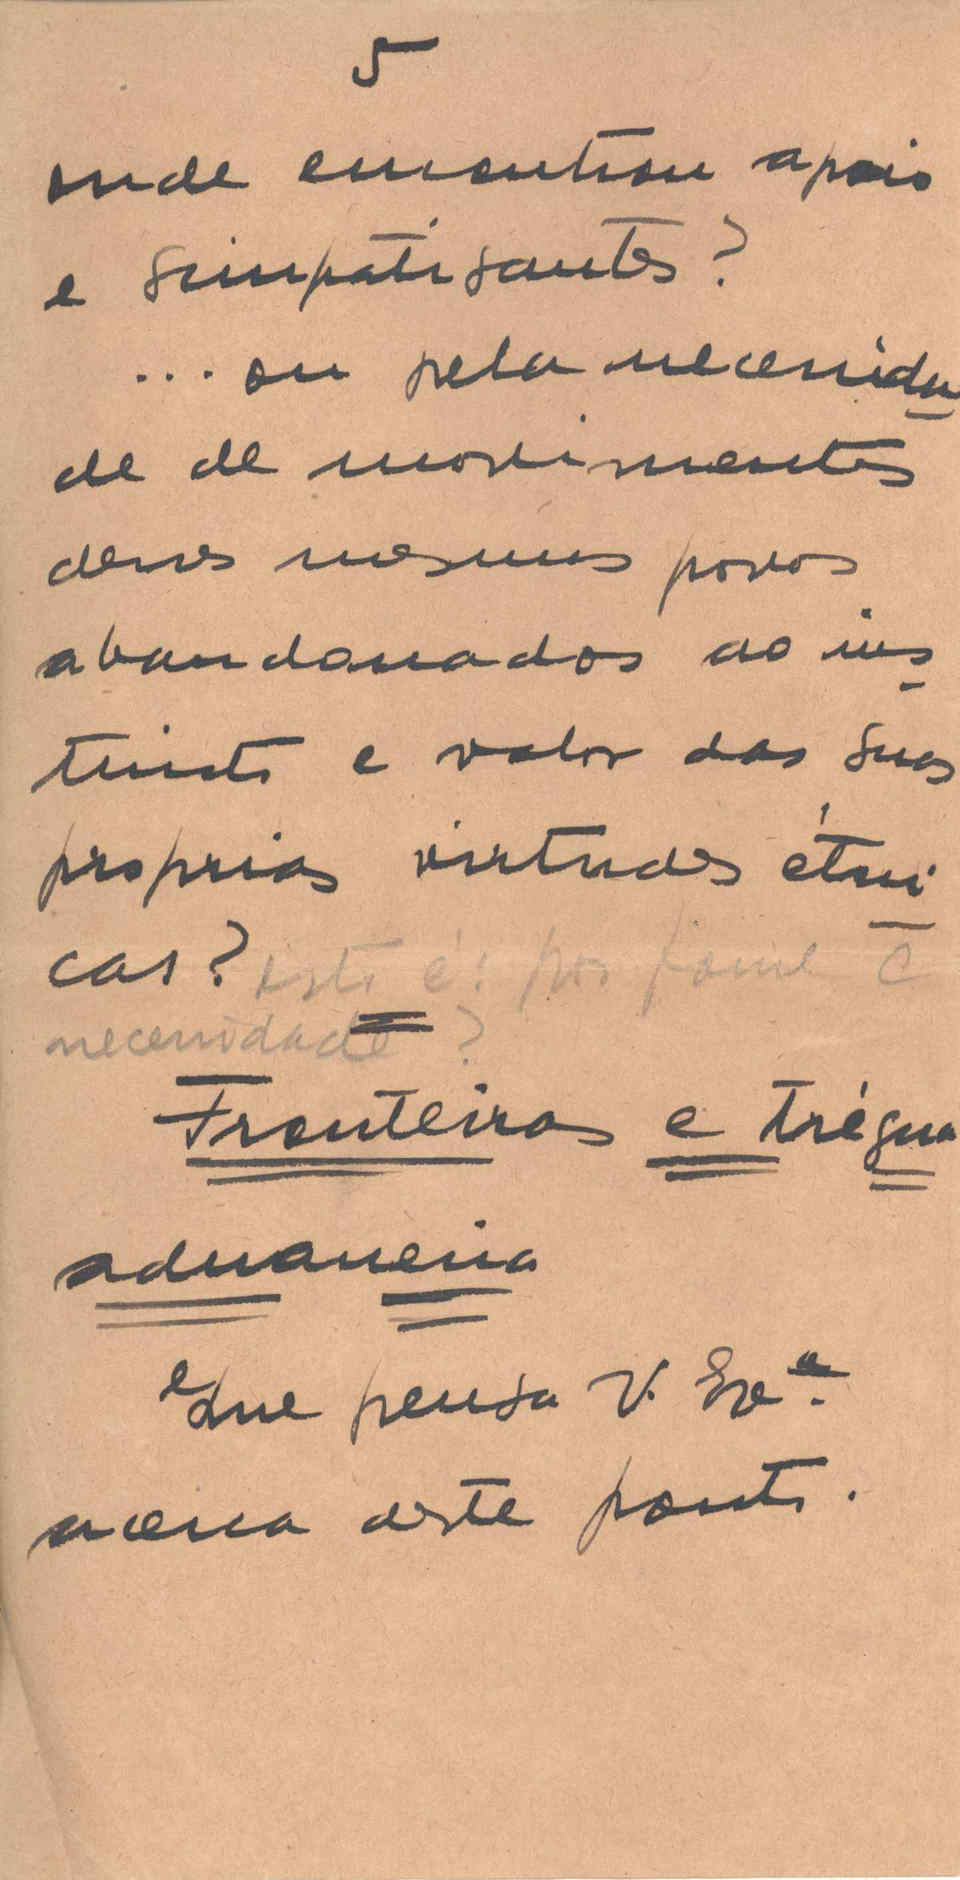 5
onde encontrou apoio
e simpatisantes?
... ou pela necessida
de de movimentos
desses mesmos povos
abandonados ao ins
tinto e valor das suas
proprias virtudes étni
cas? isto é: por fome e
necessidade?
Fronteiras e trégua
aduaneira
e que pensa V. Exª.
acerca deste ponto.